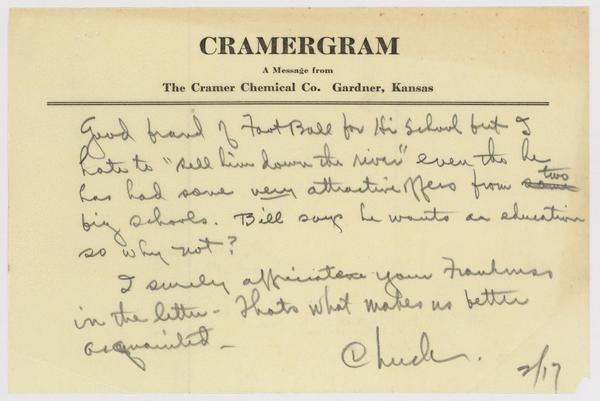 CRAMERGRAM
A Message from
The Cramer Chemical Co. Gardner, Kansas
Good brand of Foot Ball for Hi School but I
hate to "sell him down the river" even tho he
has had some very attractive offers from two
big schools. Bill says he wants an education
so why not?
I surely appriciate your Frankness
in the letter - Thats what makes us better
acquainted -
Chuck.
2/17